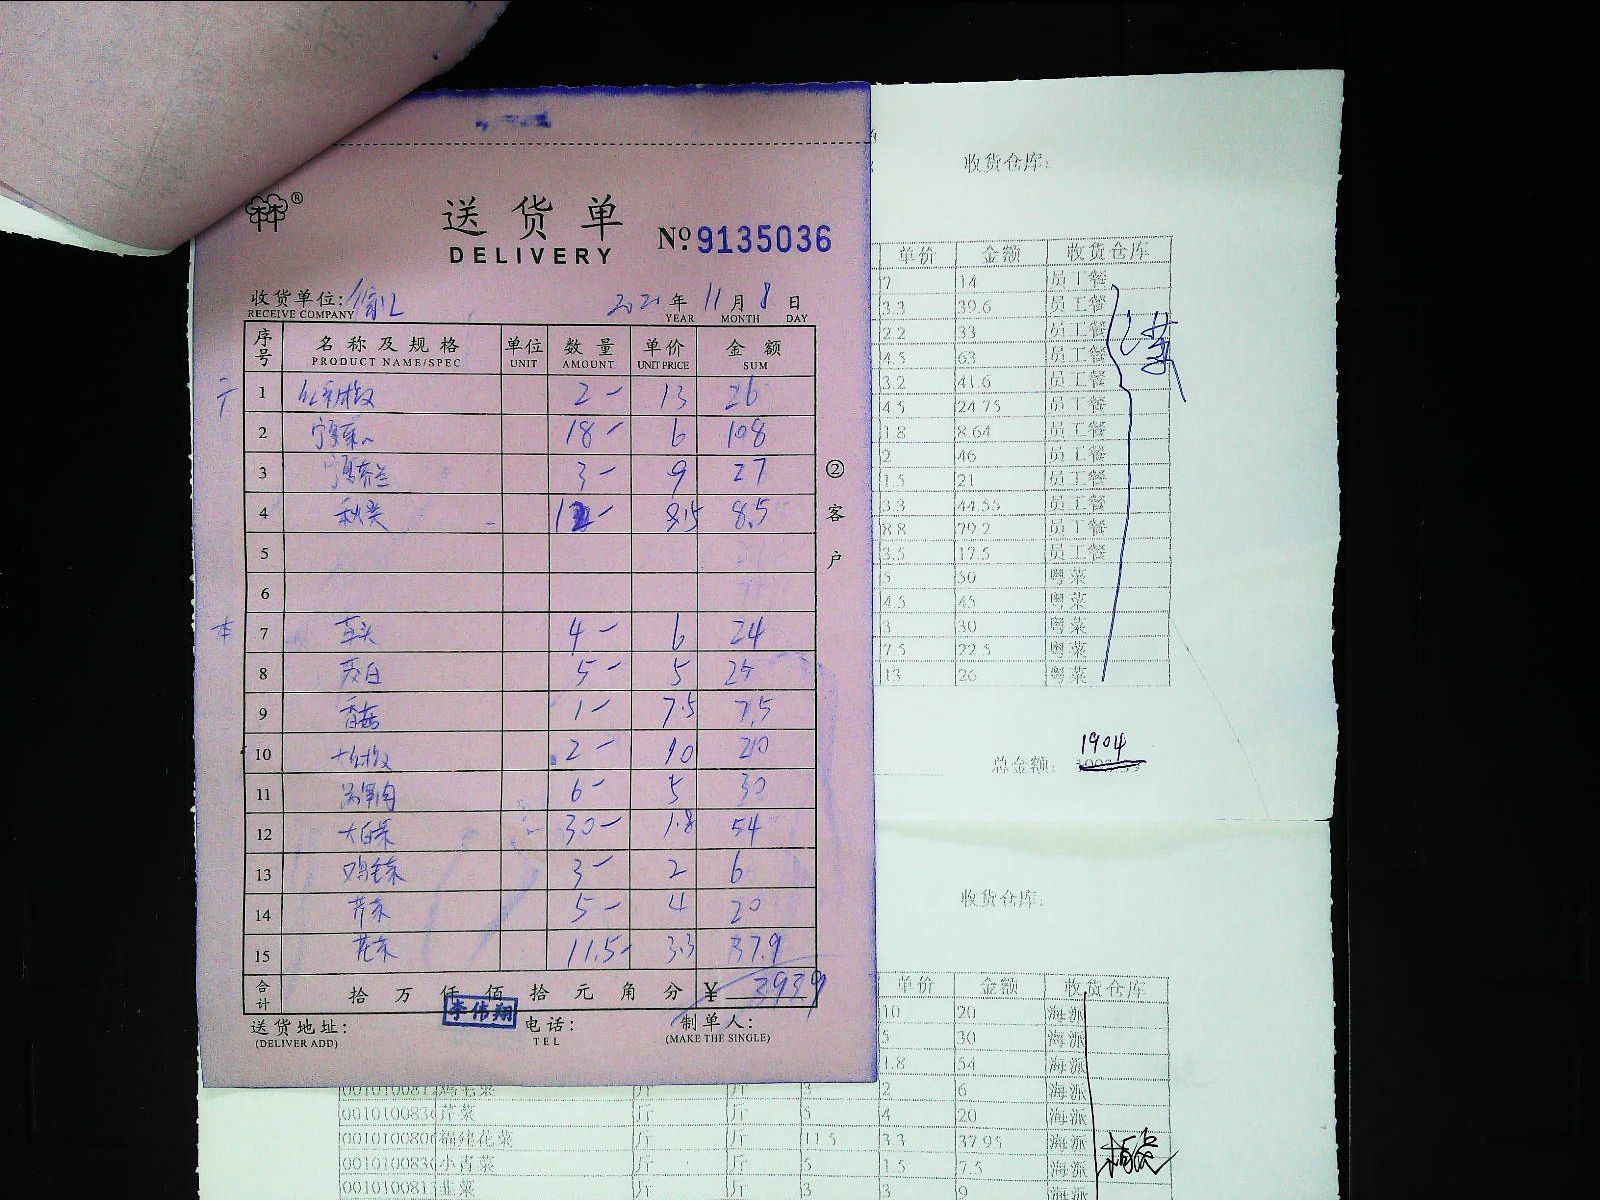 送货单
DELIVERY
№ 9135036
收货单位:
RECEIVE COMPANY
2021 年 11 月 8 日
YEAR MONTH DAY
序号 名称及规格 单位 数量 单价 金额
PRODUCT NAME/SPEC UNIT AMOUNT UNIT PRICE SUM
1 2- 13 26
2 18- 6 108
3 3- 9 27
4 秋葵 8.5 8.5
5
6
7 4- 6 24
8 茭白 5- 5 25
9 香菇 1- 7.5 7.5
10 2- 10 20
11 6- 5 30
12 大白菜 30- 1.8 54
13 鸡毛菜 3- 2 6
14 芹菜 5- 4 20
15 花菜 11.5- 3.3 37.9
合计 拾 万 仟 佰 拾 元 角 分 ¥ 3939
李伟翔
送货地址: 电话: 制单人:
(DELIVER ADD) TEL (MAKE THE SINGLE)
②客户
收货仓库:
单价 金额 收货仓库
7 14 员工餐
3.3 39.6 员工餐
2.2 33 员工餐
4.5 63 员工餐
3.2 41.6 员工餐
4.5 24.75 员工餐
1.8 8.64 员工餐
2 46 员工餐
1.5 21 员工餐
3.3 44.55 员工餐
8.8 79.2 员工餐
3.5 17.5 员工餐
5 50 粤菜
4.5 45 粤菜
3 30 粤菜
7.5 22.5 粤菜
13 26 粤菜
1904
总金额:
收货仓库:
单价 金额 收货仓库
10 20 海派
5 30 海派
1.8 54 海派
鸡毛菜 斤 斤 3 2 6 海派
芹菜 斤 斤 5 4 20 海派
福建花菜 斤 斤 11.5 3.3 37.95 海派
小青菜 斤 斤 5 1.5 7.5 海派
韭菜 斤 斤 3 3 9 海派